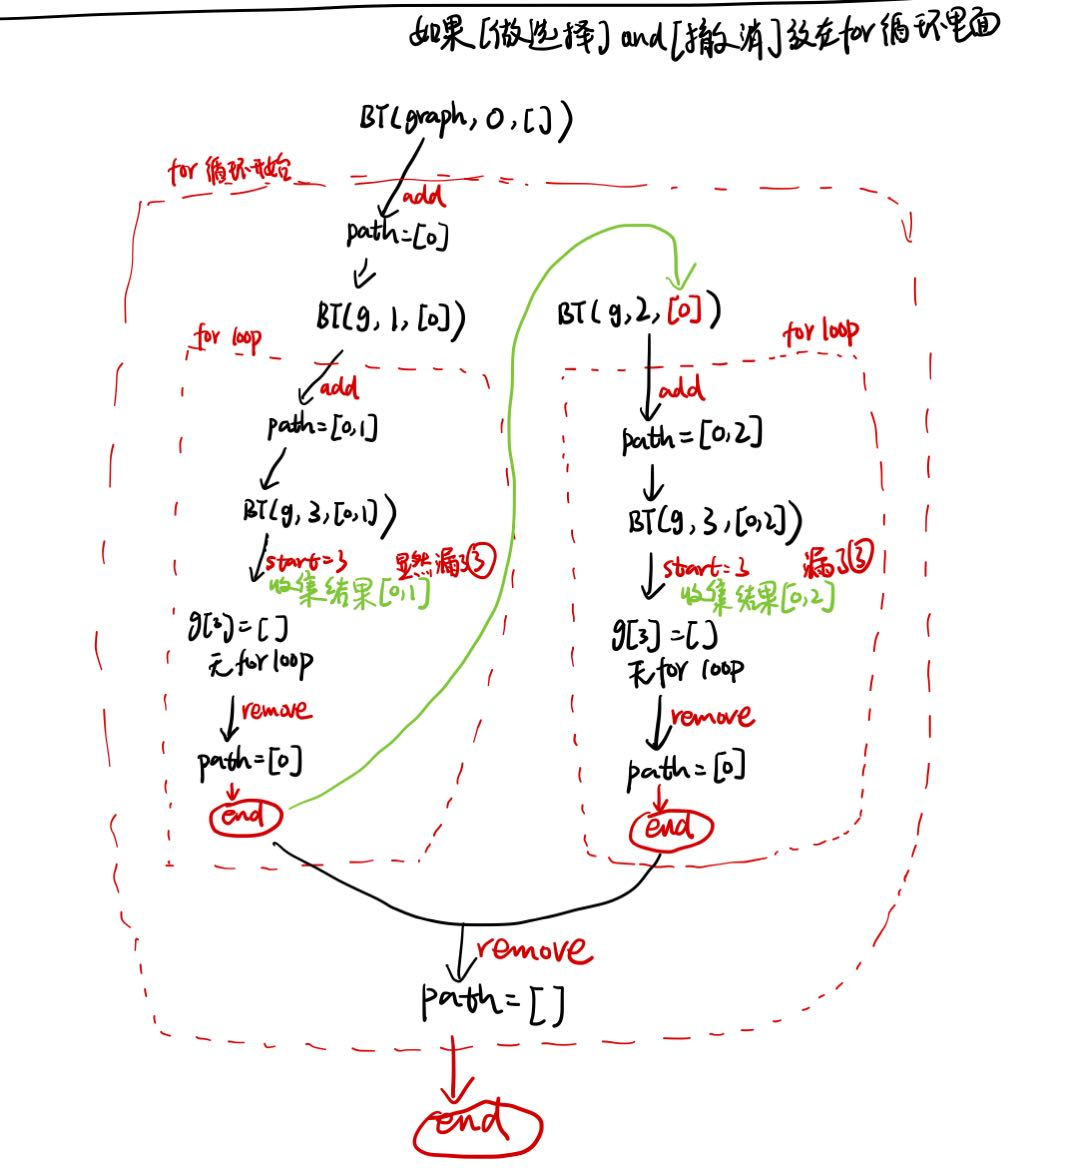 如果[做选择] and [撤消]放在for循环里面
BT(graph, 0, [])
for 循环开始
add
path=[0]
BT(g, 1, [0])
for loop
add
path=[0,1]
BT(g, 3, [0,1])
start=3 显然漏了③
收集结果[0,1]
g[3]=[]
无for loop
remove
path=[0]
end
BT(g, 2, [0])
for loop
add
path=[0,2]
BT(g, 3, [0,2])
start=3 漏了③
收集结果[0,2]
g[3]=[]
无for loop
remove
path=[0]
end
remove
path=[]
end